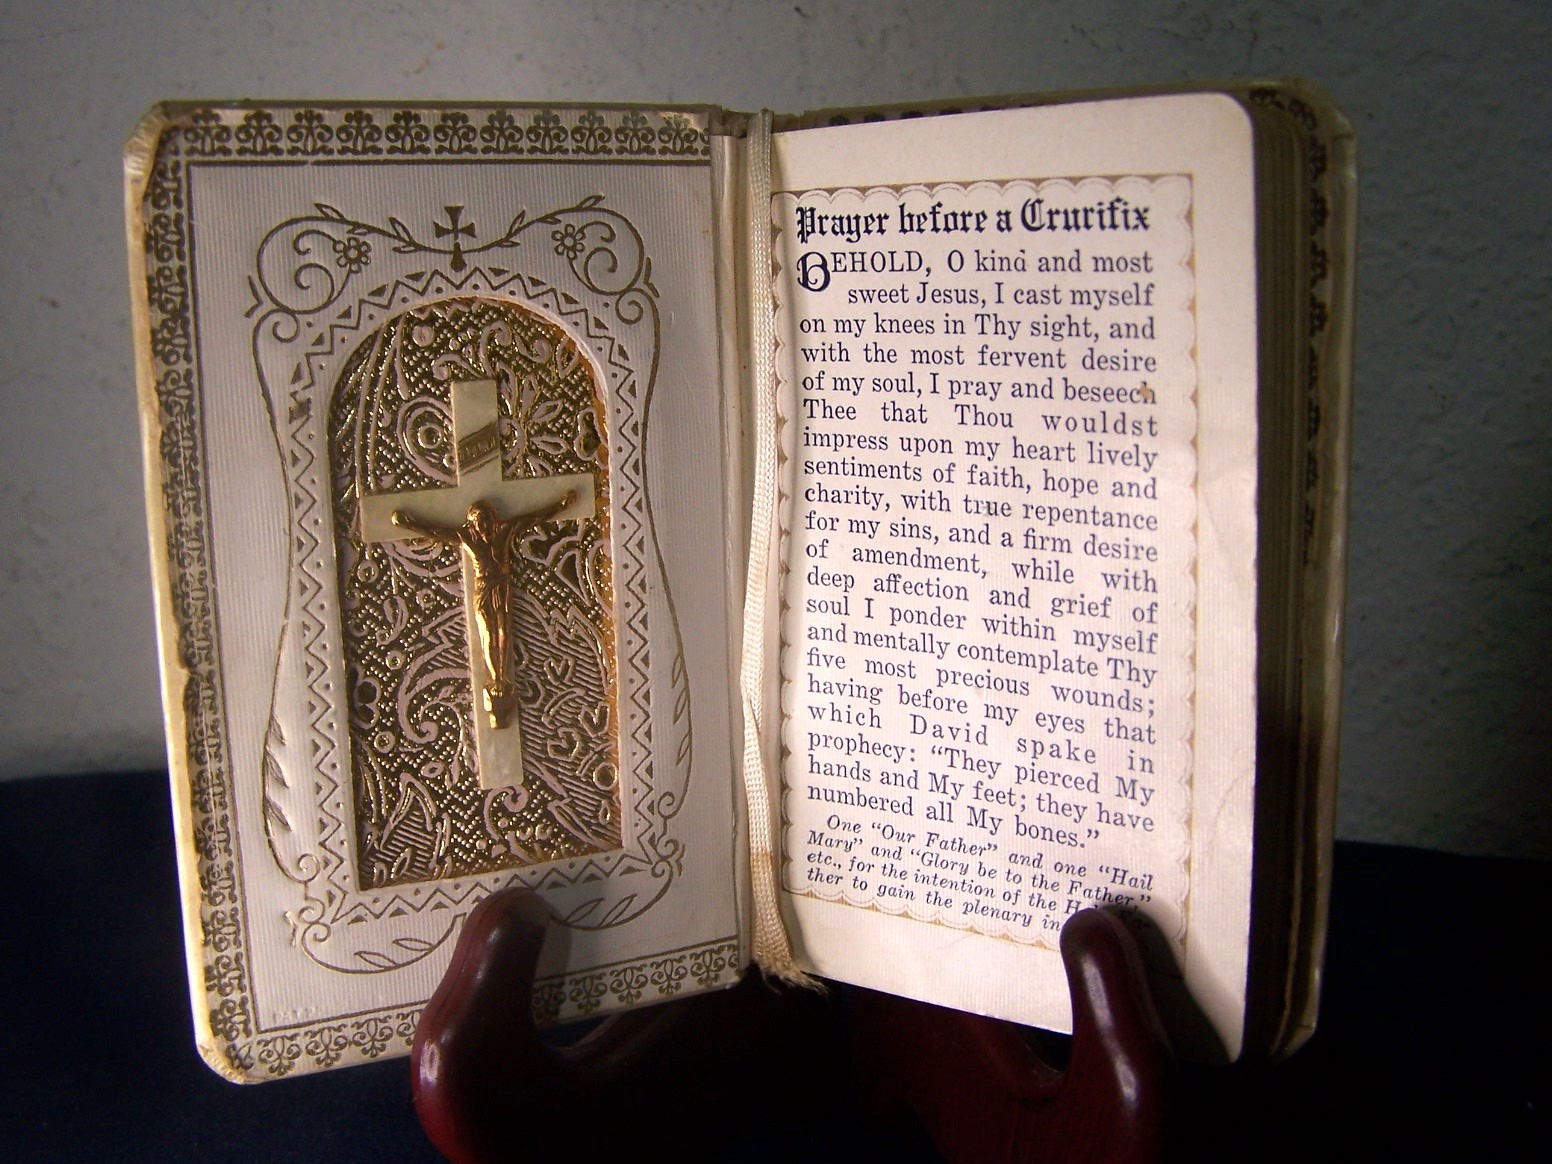 Prayer before a Crucifix
BEHOLD, O kind and most
sweet Jesus, I cast myself
on my knees in Thy sight, and
with the most fervent desire
of my soul, I pray and beseech
Thee that Thou wouldst
impress upon my heart lively
sentiments of faith, hope and
charity, with true repentance
for my sins, and a firm desire
of amendment, while with
deep affection and grief of
soul I ponder within myself
and mentally contemplate Thy
five most precious wounds;
having before my eyes that
which David spake in
prophecy: “They pierced My
hands and My feet; they have
numbered all My bones.”
One “Our Father” and one “Hail
Mary” and “Glory be to the Father,”
etc., for the intention of the
ther to gain the plenary